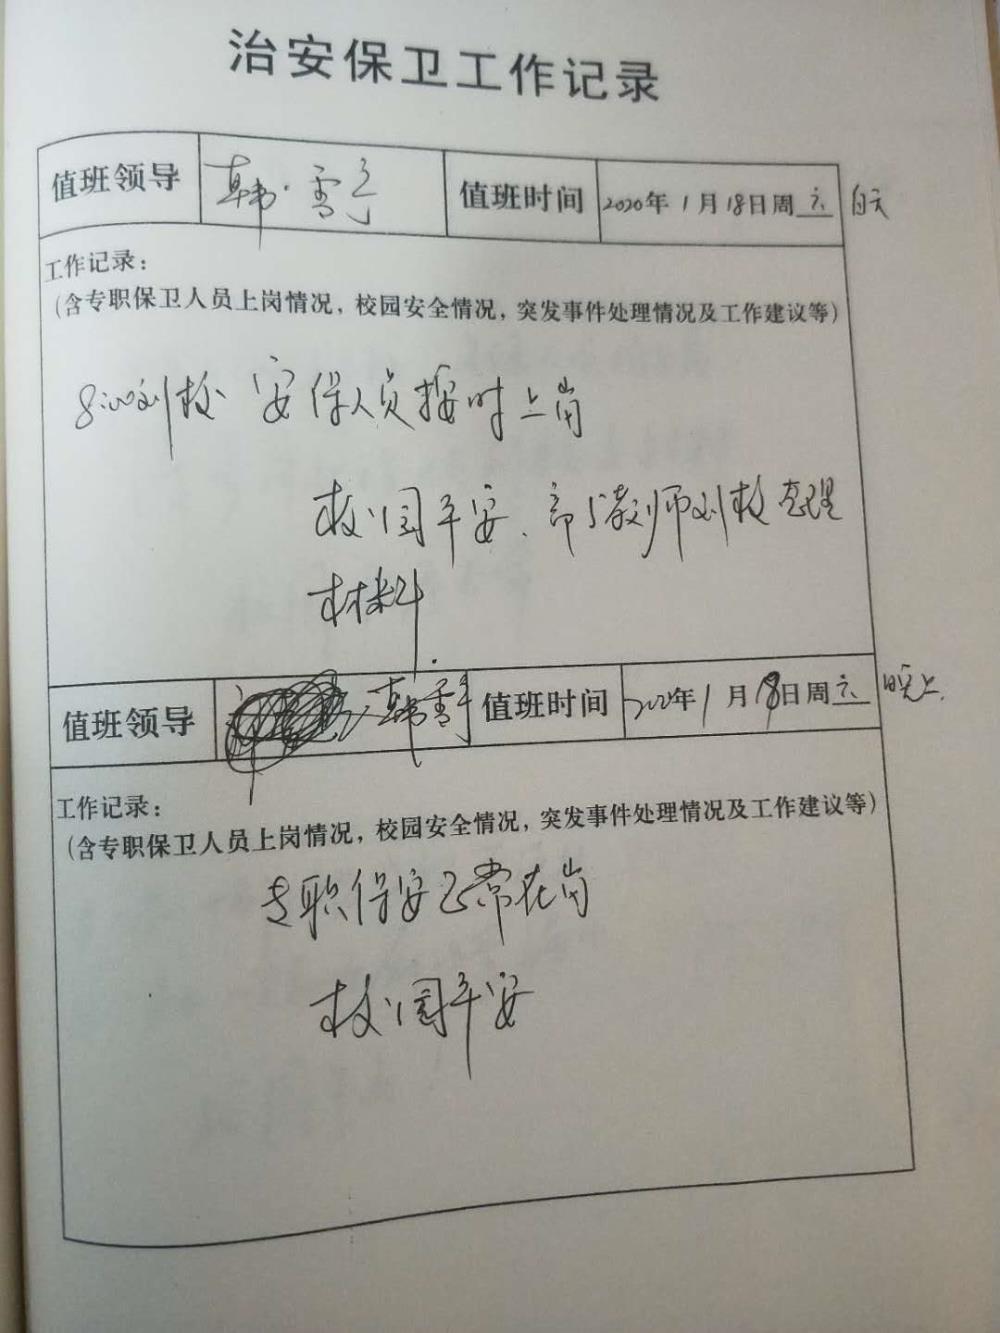 治安保卫工作记录
值班领导 韩雪 值班时间 2020年1月18日周六 白天
工作记录：
（含专职保卫人员上岗情况，校园安全情况，突发事件处理情况及工作建议等）
8:00到校 安保人员按时上岗
校园平安、部分教师到校整理
材料.
值班领导 韩雪 值班时间 2020年1月18日周六 晚上.
工作记录：
（含专职保卫人员上岗情况，校园安全情况，突发事件处理情况及工作建议等）
专职保安正常在岗
校园平安